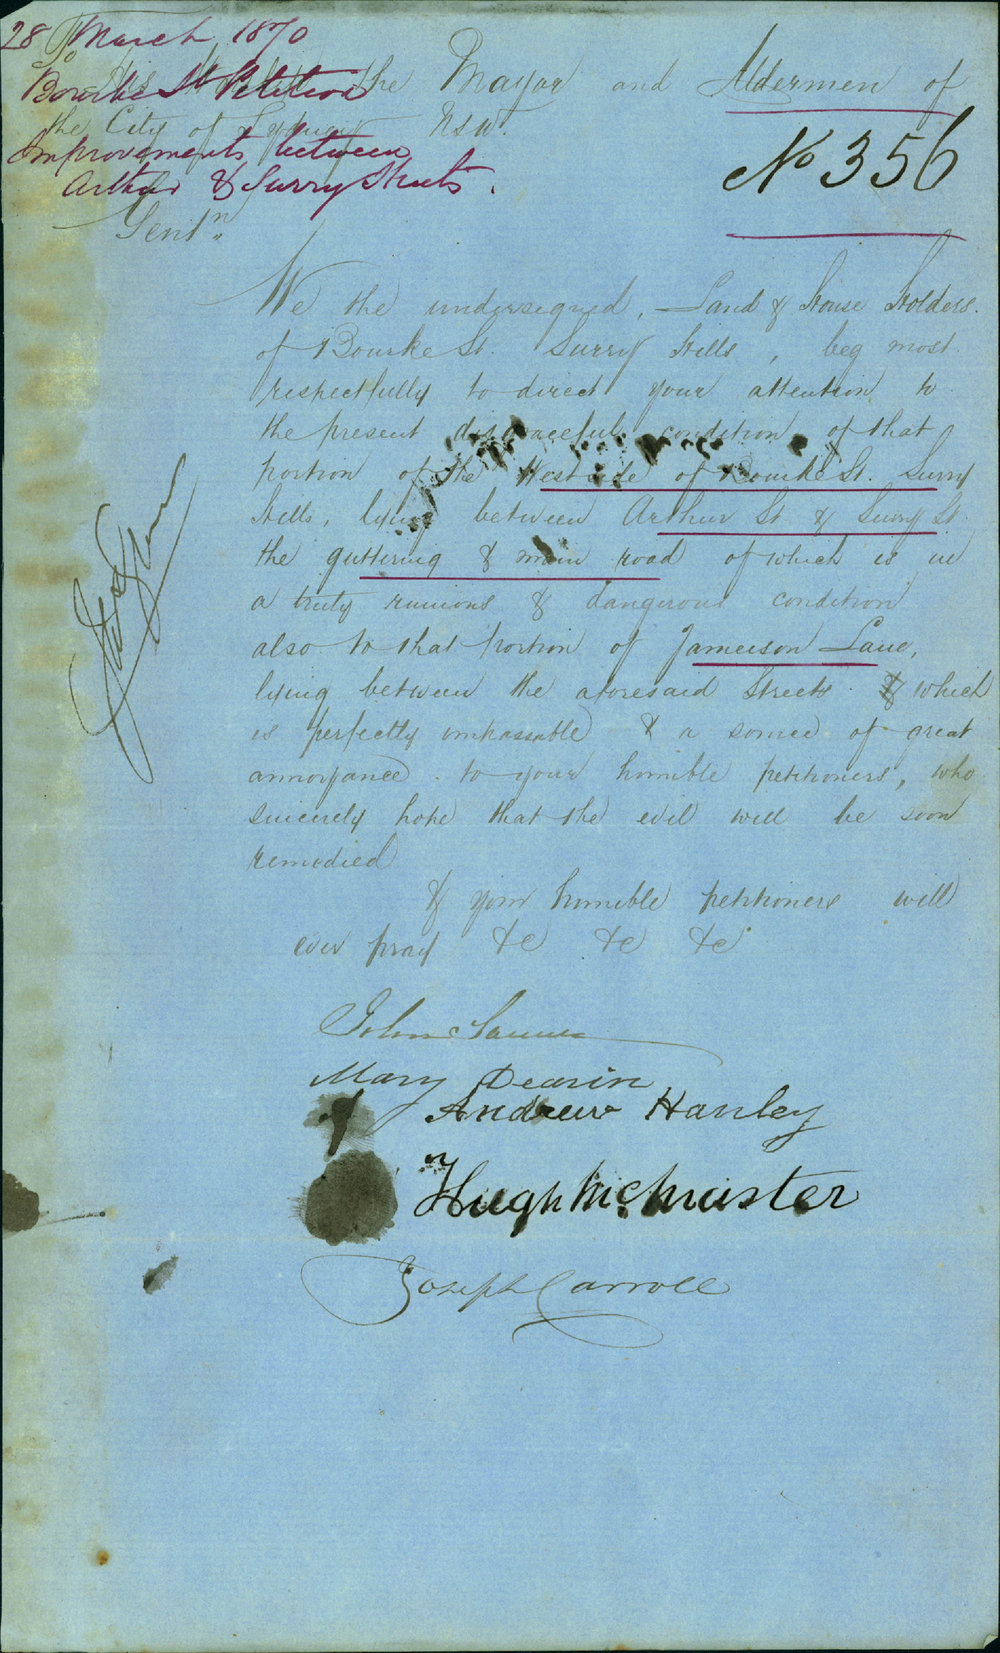 28 March 1870
Bourke St Petition
Improvements between
Arthur & Surry Streets.
the Mayor and Aldermen of
the City of Sydney NSW.
No 356
Gentn
We the undersigned, Land & House Holders
of Bourke St. Surry Hills, beg most
respectfully to direct your attention to
the present disgraceful condition of that
portion of the West side of Bourke St. Surry
Hills, lying between Arthur St & Surry St
the guttering & main road of which is in
a truly ruinous & dangerous condition
also to that portion of Jameison Lane,
lying between the aforesaid Streets & which
is perfectly impassable & a source of great
annoyance to your humble petitioners, who
sincerely hope that the evil will be soon
remedied
& your humble petitioners will
ever pray &c &c &c
John
Mary Dearin
Andrew Hanley
Hugh
Joseph Carroll